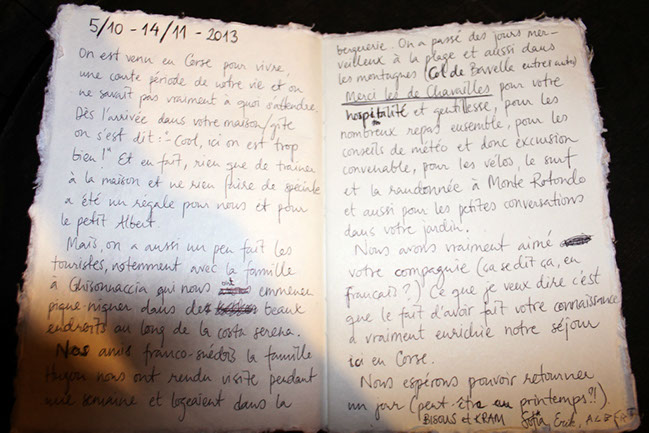 5/10 - 14/11 - 2013
On est venu en Corse pour vivre,
une courte période de notre vie et on
ne savait pas vraiment à quoi s'attendre.
Dès l'arrivée dans votre maison/gîte
on s'est dit: "Cool, ici on est trop
bien!" Et en fait, rien que de trainer
à la maison et ne rien faire de spéciale
a été un régale pour nous et pour
le petit Albert.
Mais, on a aussi un peu fait les
touristes, notemment avec la famille
à Ghisonaccia qui nous ont emmener
pique-niquer dans de beaux
endroits au long de la costa serena.
Nos amis franco-suédois la famille
nous ont rendu visite pendant
une semaine et logeaient dans la
bergerie. On a passé des jours mer-
veilleux à la plage et aussi dans
les montagnes (Col de Bavelle entres autres)
Merci les de Chavailles pour votre
hospitalité et gentillesse, pour les
nombreux repas ensemble, pour les
conseils de météo et donc excursion
convenable, pour les vélos, le surf
et la randonnée à Monte Rotondo
et aussi pour les petites conversations
dans votre jardin.
Nous avons vraiment aimé
votre compagnie (ça se dit ça, en
français?) Ce que je veux dire c'est
que le fait d'avoir fait votre connaissance
a vraiment enrichie notre séjour
ici en Corse.
Nous espérons pouvoir retourner
un jour (peut-être au printemps?!).
BISOUS et KRAM Sofia, Erik,